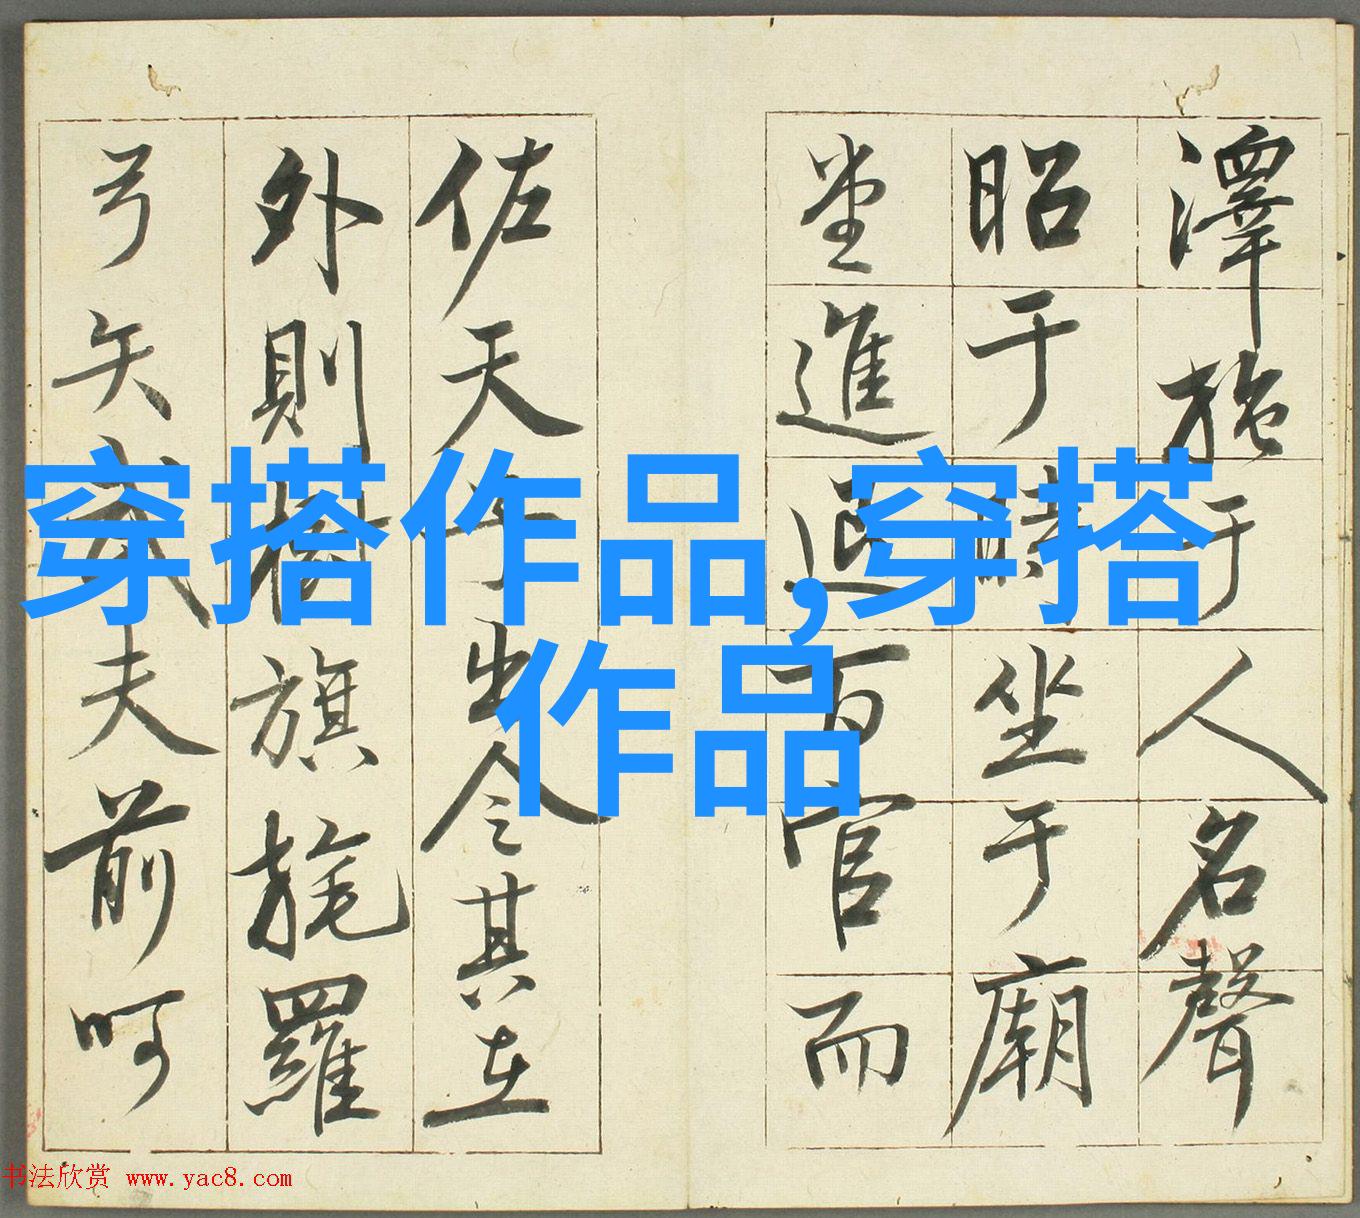 澤施于人名聲
昭于時坐于廟
堂進退百官而
佐天子出令其在
外則樹旗旄羅
弓矢武夫前呵
穿搭作品,穿搭
作品
书法欣赏 www.yac8.com